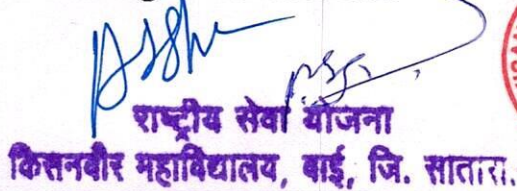 राष्ट्रीय सेवा योजना
किसनवीर महाविद्यालय, वाई, जि. सातारा.